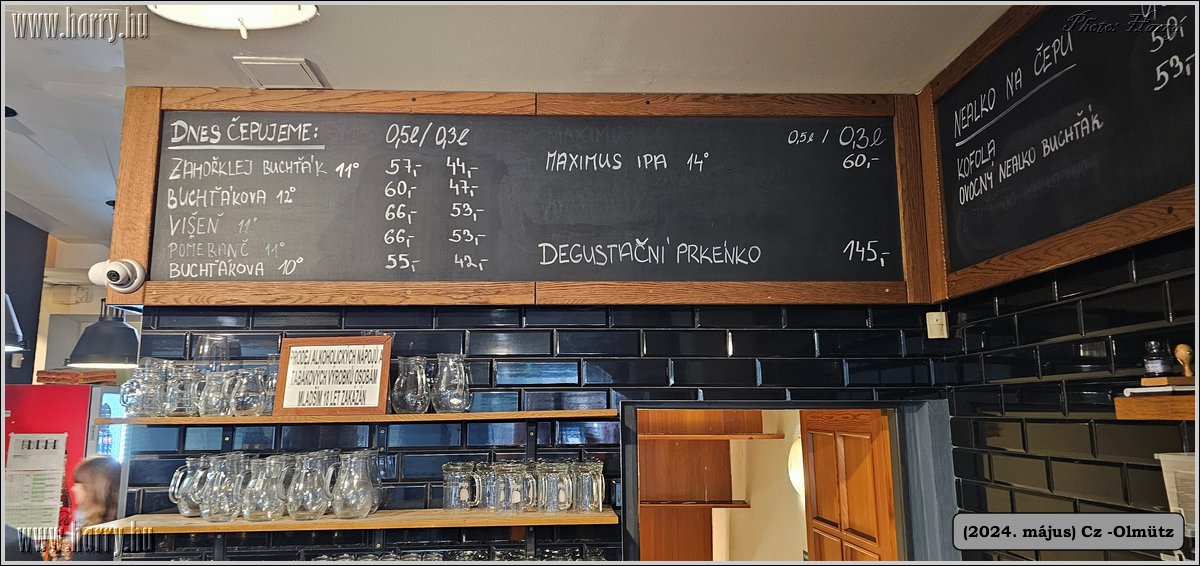 www.harry.hu
Photo: Harry
DNES ČEPUJEME: 0,5l / 0,3l
ZAMOŘKLEJ BUCHŤÁK 11° 57,- 44,-
BUCHŤÁKOVA 12° 60,- 47,-
VIŠEŇ 11° 66,- 53,-
POMERANČ 11° 66,- 53,-
BUCHŤÁKOVA 10° 55,- 42,-
0,5l / 0,3l
MAXIMUS IPA 14° 60,-
DEGUSTAČNÍ PRKÉNKO 145,-
NEALKO NA ČEPU
KOFOLA 50,-
OVOCNÝ NEALKO BUCHŤÁK 53,-
PRODEJ ALKOHOLICKÝCH NÁPOJŮ
TABÁKOVÝCH VÝROBKŮ OSOBÁM
MLADŠÍM 18 LET ZAKÁZÁN
www.harry.hu
(2024. május) Cz -Olmütz